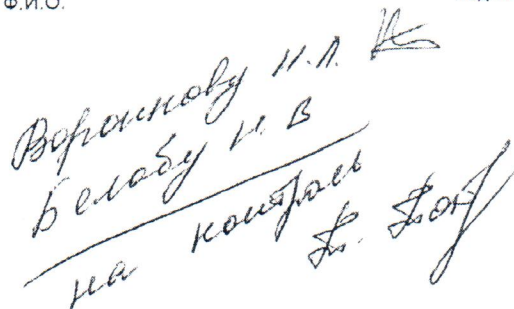 Ф.И.О.
Воронкову Н.Л.
Белову Н. В
на контроль